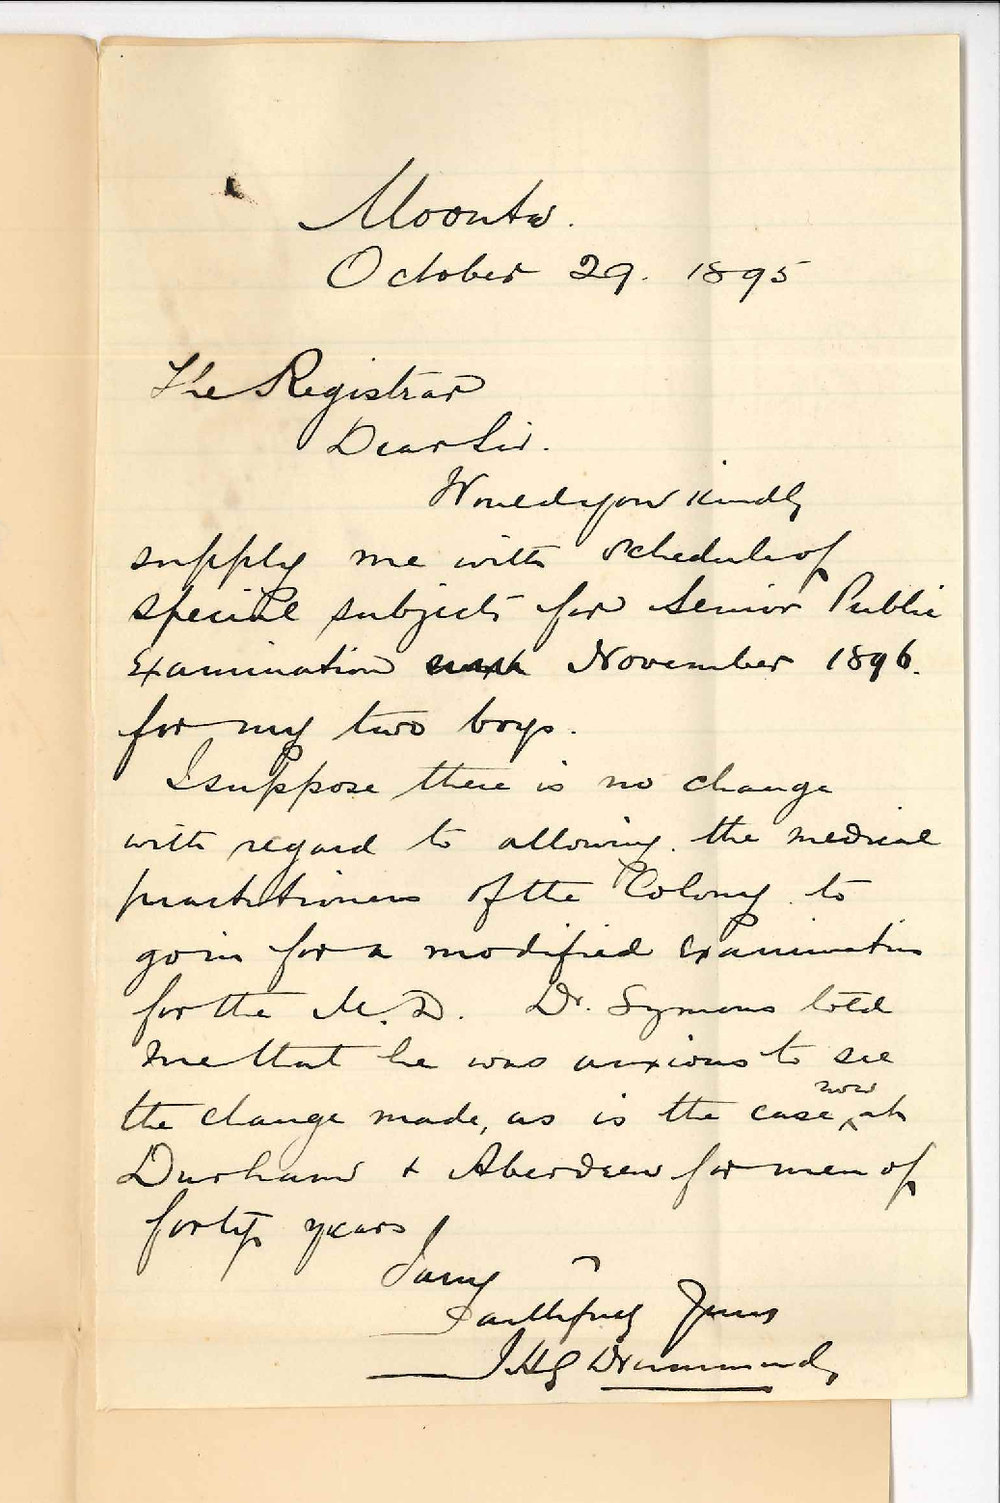 Moonta.
October 29. 1895
The Registrar
Dear Sir.
Would you kindly
supply me with schedule of
special subjects for Senior Public
Examination November 1896.
for my two boys.
I suppose there is no change
with regard to allowing the medical
practitioners of the Colony to
go in for a modified Examination
for the M.D. Dr. Symons told
me that he was anxious to see
the change made, as is the case now at
Durham & Aberdeen for men of
forty years
I am
Faithfully Yours
J H G Drummond